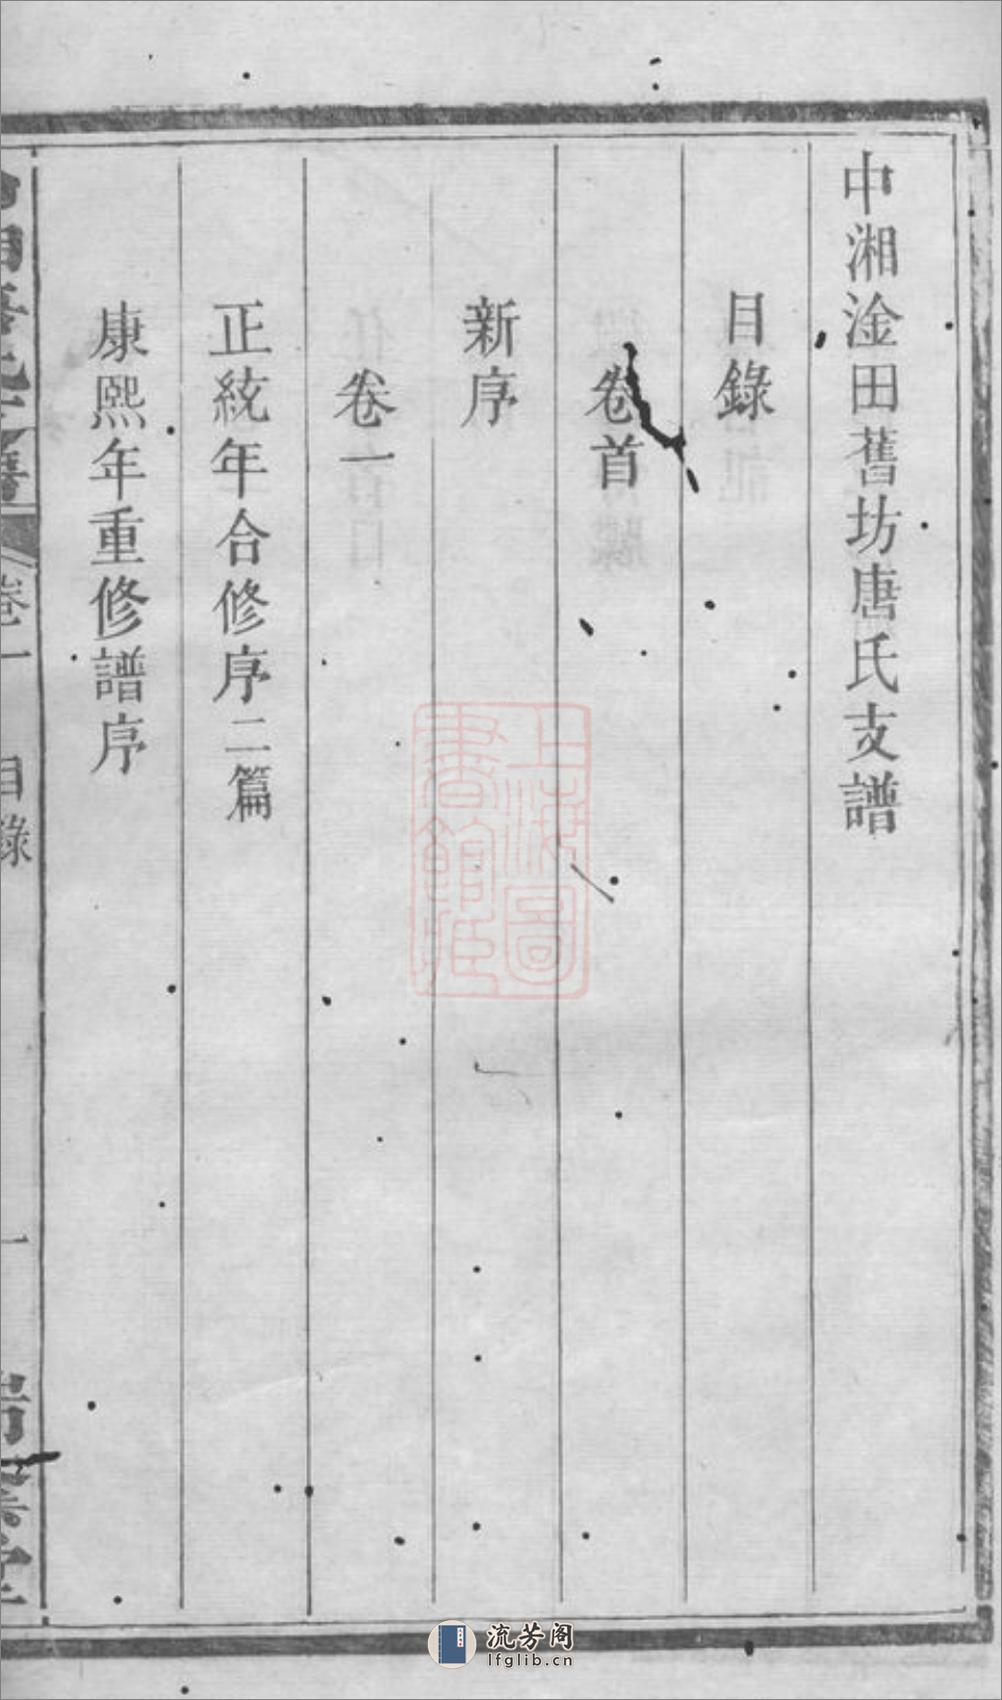 中湘淦田舊坊唐氏支譜
目錄
卷首
新序
卷一
正統年合修序二篇
康熙年重修譜序
卷一
目錄
一
上海圖
書館藏
流芳阁
lfglib.cn